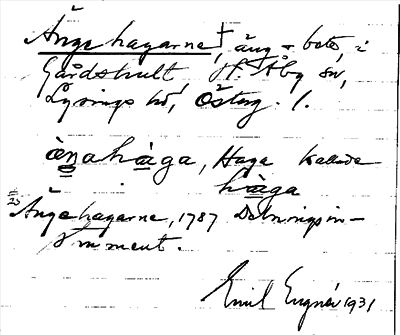 Ängahagarne†, äng o bete, i
Gårdshult St. Åby sn,
Lysings hd, Österg. l.
àŋahàga, Haga kallade
hàga
Ängahagarne, 1787 Delningsin-
strument.
Emil Eugnér 1931